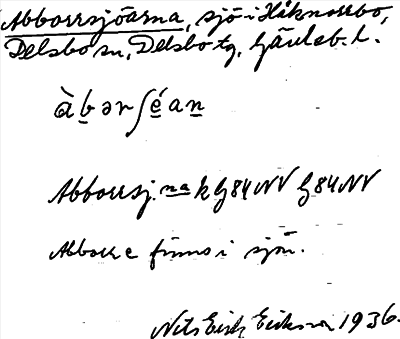 Abborrsjöarna, sjö i Håknorrbo,
Delsbo sn, Delsbo tg, Gävleb. l.
à b ə r ʃ é a n
Abborrsj. na k G 84 NV G 84 NV
Abborre finns i sjön.
Nils Erik Eriksson 1936.